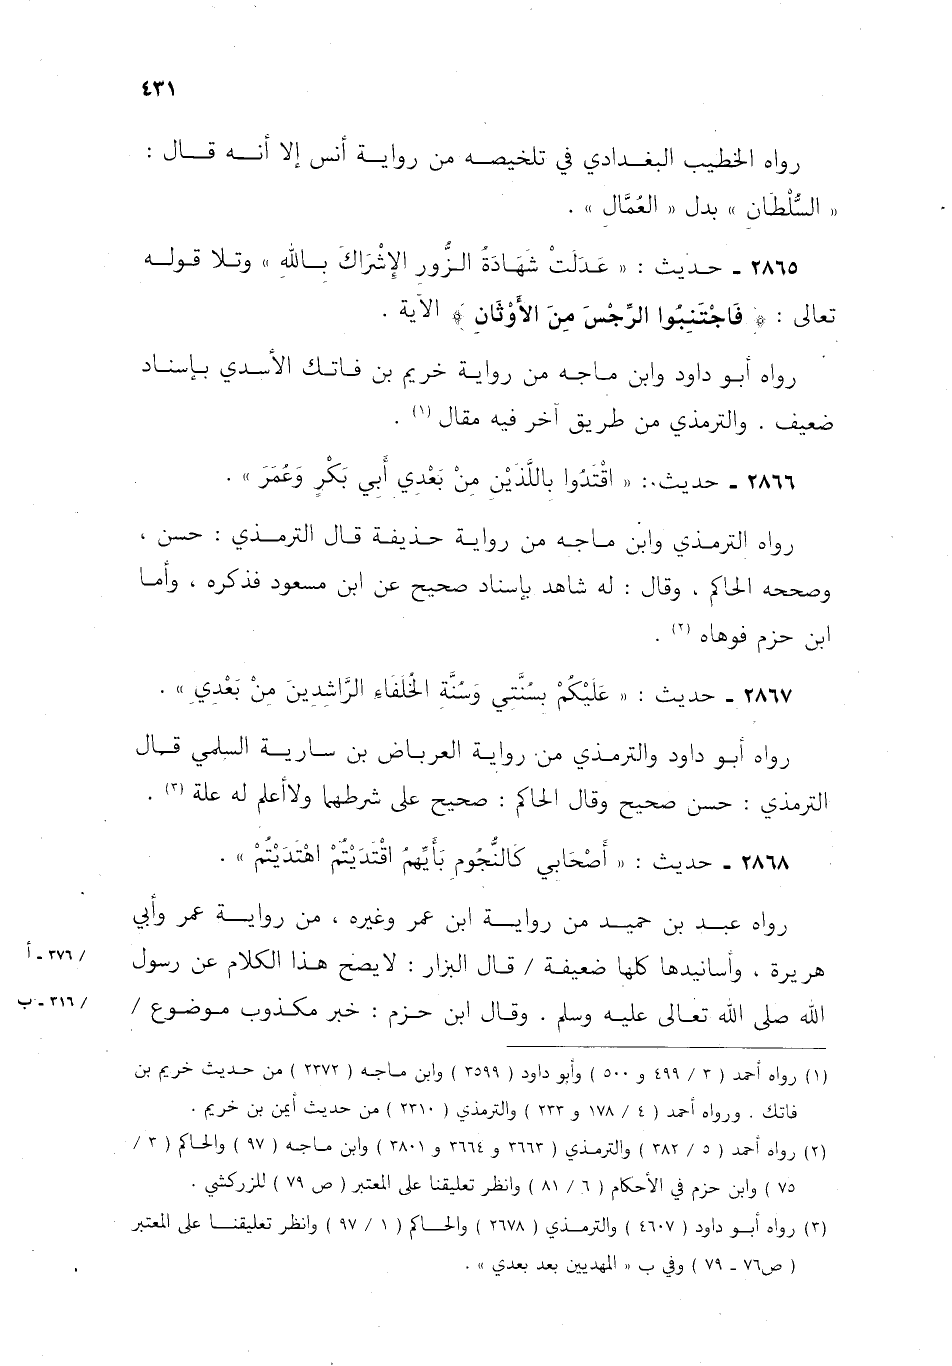 ٤٣١
رواه الخطيب البغدادي في تلخيصه من رواية أنس إلا أنه قال :
« السُّلْطَان » بدل « العُمَّال » .
٢٨٦٥ ـ حديث : « عَدَلَتْ شَهَادَةُ الزُّورِ الإِشْرَاكَ بِاللهِ » وتلا قوله
تعالى : ﴿ فَاجْتَنِبُوا الرِّجْسَ مِنَ الأَوْثَانِ ﴾ الآية .
رواه أبو داود وابن ماجه من رواية خريم بن فاتك الأسدي بإسناد
ضعيف . والترمذي من طريق آخر فيه مقال (١) .
٢٨٦٦ ـ حديث : « اقْتَدُوا بِاللَّذَيْنِ مِنْ بَعْدِي أَبِي بَكْرٍ وَعُمَرَ » .
رواه الترمذي وابن ماجه من رواية حذيفة قال الترمذي : حسن ،
وصححه الحاكم ، وقال : له شاهد بإسناد صحيح عن ابن مسعود فذكره ، وأما
ابن حزم فوهاه (٢) .
٢٨٦٧ ـ حديث : « عَلَيْكُمْ بِسُنَّتِي وَسُنَّةِ الخُلَفَاءِ الرَّاشِدِينَ مِنْ بَعْدِي » .
رواه أبو داود والترمذي من رواية العرباض بن سارية السلمي قال
الترمذي : حسن صحيح وقال الحاكم : صحيح على شرطهما ولاأعلم له علة (٣) .
٢٨٦٨ ـ حديث : « أَصْحَابِي كَالنُّجُومِ بَأَيِّهِمُ اقْتَدَيْتُمْ اهْتَدَيْتُمْ » .
رواه عبد بن حميد من رواية ابن عمر وغيره ، من رواية عمر وأبي
هريرة ، وأسانيدها كلها ضعيفة / قال البزار : لايصح هذا الكلام عن رسول
/ ٣٧٦ ـ أ
الله صلى الله تعالى عليه وسلم . وقال ابن حزم : خبر مكذوب موضوع /
/ ٣١٦ ـ ب
(١) رواه أحمد ( ٣ / ٤٩٩ و ٥٠٠ ) وأبو داود ( ٣٥٩٩ ) وابن ماجه ( ٢٣٧٢ ) من حديث خريم بن
فاتك . ورواه أحمد ( ٤ / ١٧٨ و ٢٣٣ ) والترمذي ( ٢٣١٠ ) من حديث أيمن بن خريم .
(٢) رواه أحمد ( ٥ / ٣٨٢ ) والترمذي ( ٣٦٦٣ و ٣٦٦٤ و ٣٨٠١ ) وابن ماجه ( ٩٧ ) والحاكم ( ٣ /
٧٥ ) وابن حزم في الأحكام ( ٦ / ٨١ ) وانظر تعليقنا على المعتبر ( ص ٧٩ ) للزركشي .
(٣) رواه أبو داود ( ٤٦٠٧ ) والترمذي ( ٢٦٧٨ ) والحاكم ( ١ / ٩٧ ) وانظر تعليقنا على المعتبر
( ص٧٦ ـ ٧٩ ) وفي ب « المهديين بعد بعدي » .